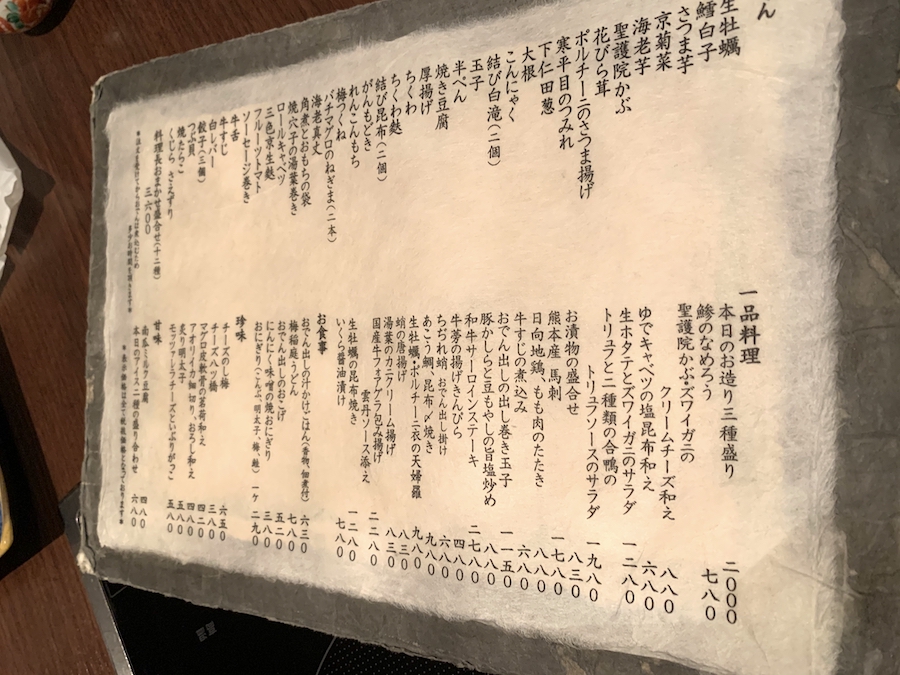 ん
生牡蠣
鱈白子
さつま芋
京菊菜
海老芋
聖護院かぶ
花びら茸
ポルチーニのさつま揚げ
寒平目のつみれ
下仁田葱
大根
こんにゃく
結び白滝(二個)
玉子
半ぺん
焼き豆腐
厚揚げ
ちくわ
ちくわ麩
結び昆布(二個)
がんもどき
れんこんもち
梅つくね
バチマグロのねぎま(二本)
海老真丈
角煮とおもちの袋
焼穴子の湯葉巻き
ロールキャベツ
三色京生麩
フルーツトマト
ソーセージ巻き
牛舌
牛すじ
白レバー
餃子(三個)
つぶ貝
焼たらこ
くじら さえずり
料理長おまかせ盛合せ(十二種)
三六〇〇
一品料理
本日のお造り三種盛り 二〇〇〇
鯵のなめろう 七八〇
聖護院かぶ・ズワイガニの
クリームチーズ和え 八八〇
ゆでキャベツの塩昆布和え 六八〇
生ホタテとズワイガニのサラダ 一二八〇
トリュフと二種類の合鴨の
トリュフソースのサラダ 一九八〇
お漬物の盛合せ 八三〇
熊本産 馬刺 一七八〇
日向地鶏、もも肉のたたき 八八〇
牛すじの煮込み 六八〇
おでん出しの出し巻き玉子 一一五〇
豚かしらと豆もやしの旨塩炒め 八八〇
和牛サーロインステーキ 二七八〇
牛蒡の揚げきんぴら 四八〇
ちぢれ蛸 おでん出し掛け 六八〇
あこう鯛、昆布〆焼き 九八〇
生牡蠣・ポルチーニ衣の天婦羅 九八〇
蛸の唐揚げ 八三〇
湯葉のカニクリーム揚げ 八三〇
国産牛フォアグラ包み揚げ
雲丹ソース添え 二二八〇
生牡蠣の昆布焼き 一二八〇
いくら醤油漬け 七八〇
お食事
おでん出しの汁かけごはん(香物、佃煮付) 六三〇
梅稲庭うどん 七八〇
おでん出しのおこげ 五二〇
にんにく味噌の焼おにぎり 三八〇
おにぎり(こんぶ、明太子、梅、鮭) 一ケ 二九〇
珍味
チーズのし梅 六五〇
チーズ八ツ橋 三八〇
マグロ皮軟骨の茗荷和え 四二〇
アオリイカ細切り、おろし和え 四八〇
炙り明太子 五八〇
モッツァレラチーズといぶりがっこ 五八〇
甘味
南瓜ミルク豆腐 四八〇
本日のアイス二種の盛り合わせ 六八〇
※表示価格は全て税抜価格となっております※